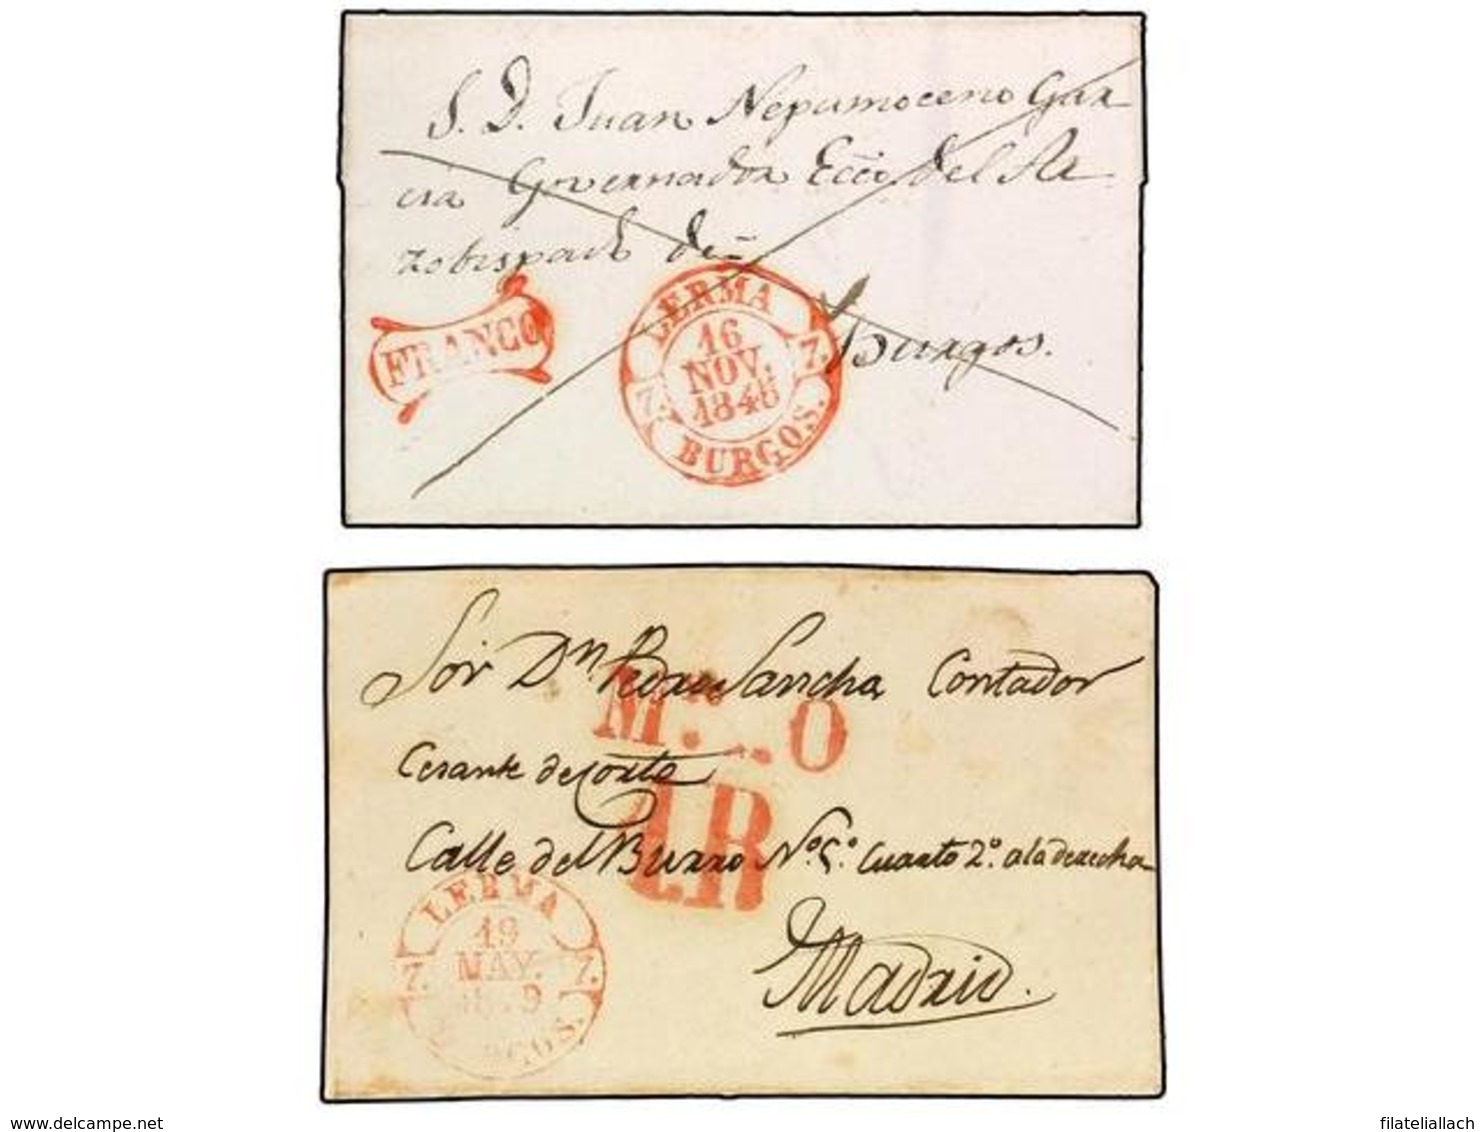 S. D. Juan Nepamoceno Gar
cia Governador Ecco del Ar
zobispado de
Burgos.
FRANCO
LERMA
16
NOV.
1848
7. 7.
BURGOS.
Sor Dn. Pedro Sancha Contador
Cesante de
Calle del Burro No. 5o. Cuarto 2o. a la derecha
Madrid.
M. O
1R
LERMA
19
MAY.
7. 7.
delcampe.net
filateliallach